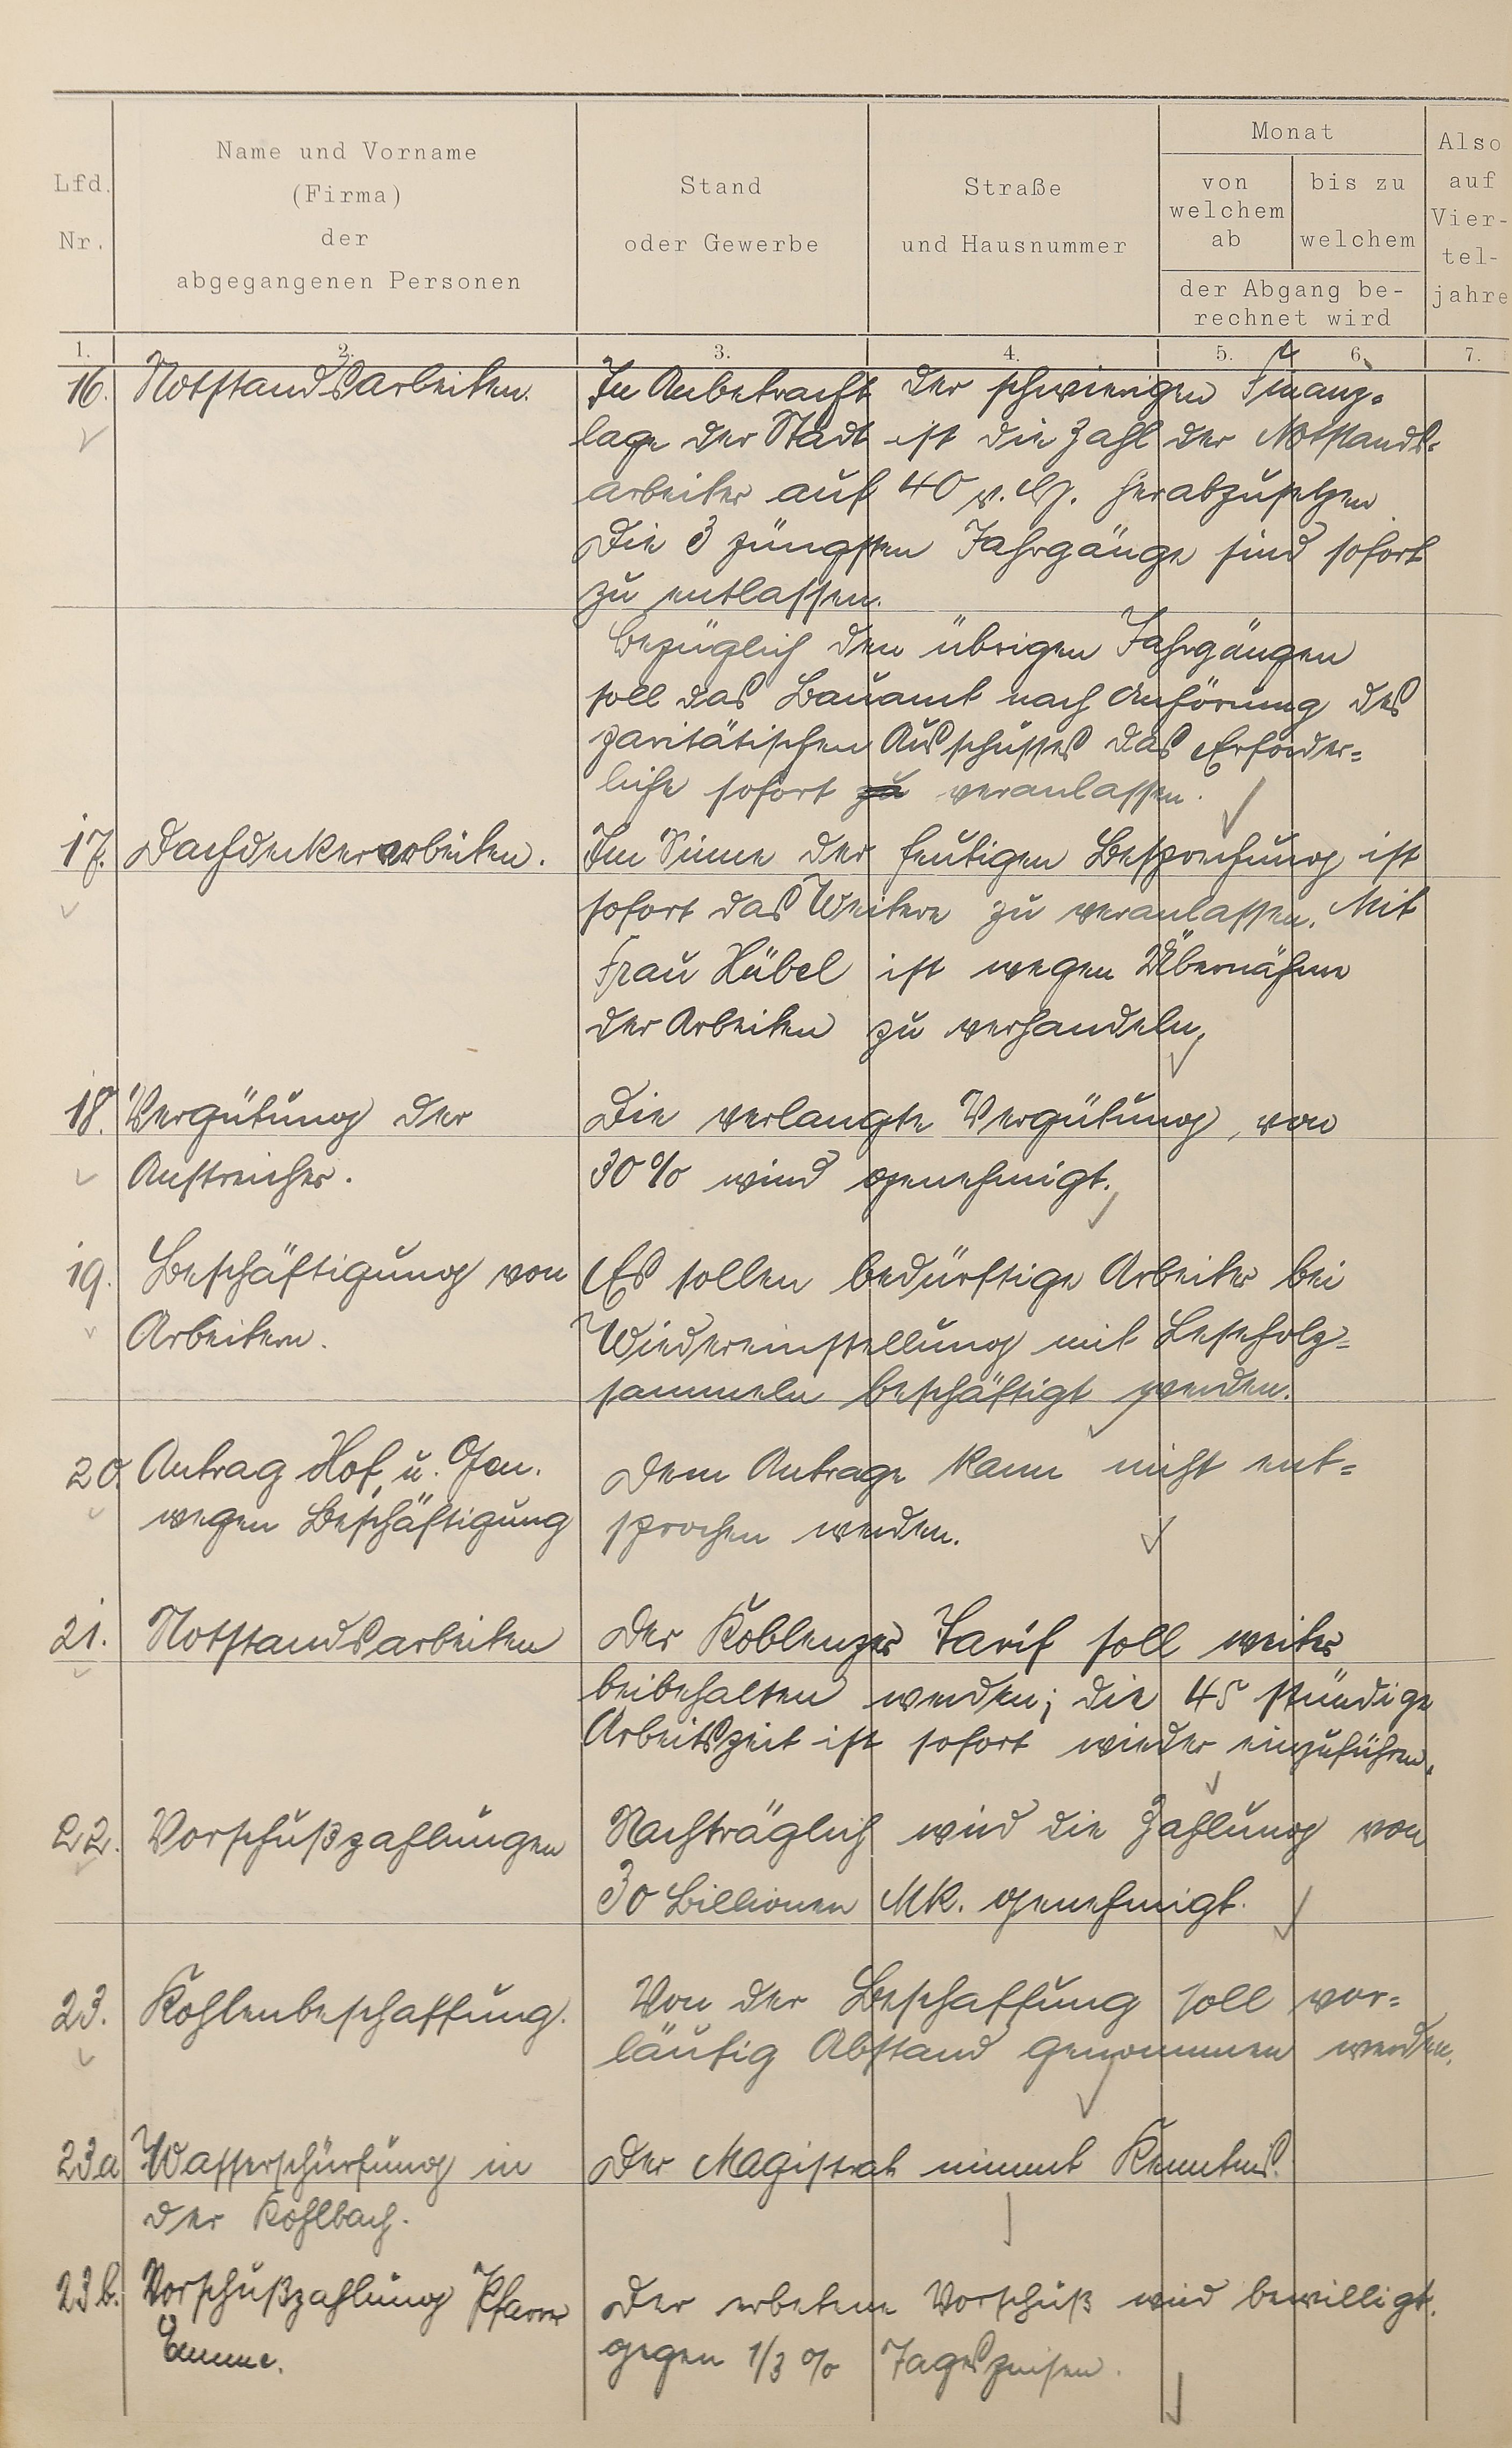 Lfd. Nr.
Name und Vorname
(Firma)
der
abgegangenen Personen
Stand
oder Gewerbe
Straße
und Hausnummer
Monat
von welchem ab
bis zu welchem
der Abgang berechnet wird
Also auf Vierteljahre
1. 2. 3. 4. 5. 6. 7.
16. Notstandsarbeiten. In Anbetracht der schwierigen Finanz-
lage der Stadt ist die Zahl der Notstands-
arbeiter auf 40 v. H. herabzusetzen
Die 3 jüngsten Jahrgänge sind sofort
zu entlassen.
Bezüglich den übrigen Jahrgängen
soll das Bauamt nach Anhörung des
paritätischen Ausschusses das Erforder=
liche sofort zu veranlassen.
17. Dachdeckerarbeiten. Im Sinne der heutigen Besprechung ist
sofort das Weitere zu veranlassen. Mit
Frau Hübel ist wegen Übernahme
der Arbeiten zu verhandeln.
18. Vergütung der Die verlangte Vergütung, von
Anstreicher. 30% wird genehmigt.
19. Beschäftigung von Es sollen bedürftige Arbeiter bei
Arbeitern. Wiedereinstellung mit Leseholz=
sammeln beschäftigt werden.
20. Antrag Hof u. Gen. Dem Antrage kann nicht ent=
wegen Beschäftigung sprochen werden.
21. Notstandsarbeiten Der Koblenzer Tarif soll weiter
beibehalten werden; die 45 stündige
Arbeitszeit ist sofort wieder einzuführen.
22. Vorschußzahlungen Nachträglich wird die Zahlung von
30 Billionen Mk. genehmigt.
23. Kohlenbeschaffung. Von der Beschaffung soll vor=
läufig Abstand genommen werden.
23a Wasserschürfung in Der Magistrat nimmt Kenntnis.
der Kohlbach.
23b. Vorschußzahlung Pfarrer Der erbetene Vorschuß wird bewilligt.
gegen 1/3 % Tageszinsen.